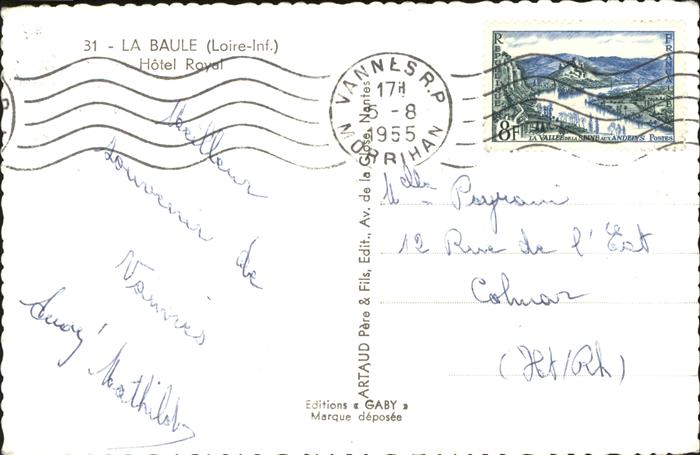 31 - LA BAULE (Loire-Inf.)
Hôtel Royal
Meilleur
souvenir de
Vannes
Mathilde
VANNES R.P
17H
-8
1955
MORBIHAN
REPUBLIQUE FRANÇAISE
8F
LA VALLÉE DE LA SEINE AUX ANDELYS Postes
ARTAUD Père & Fils, Edit., Av. de la Close, Nantes
Melle Peyrani
12 Rue de l'Est
Colmar
(Ht/Rh)
Editions « GABY »
Marque déposée